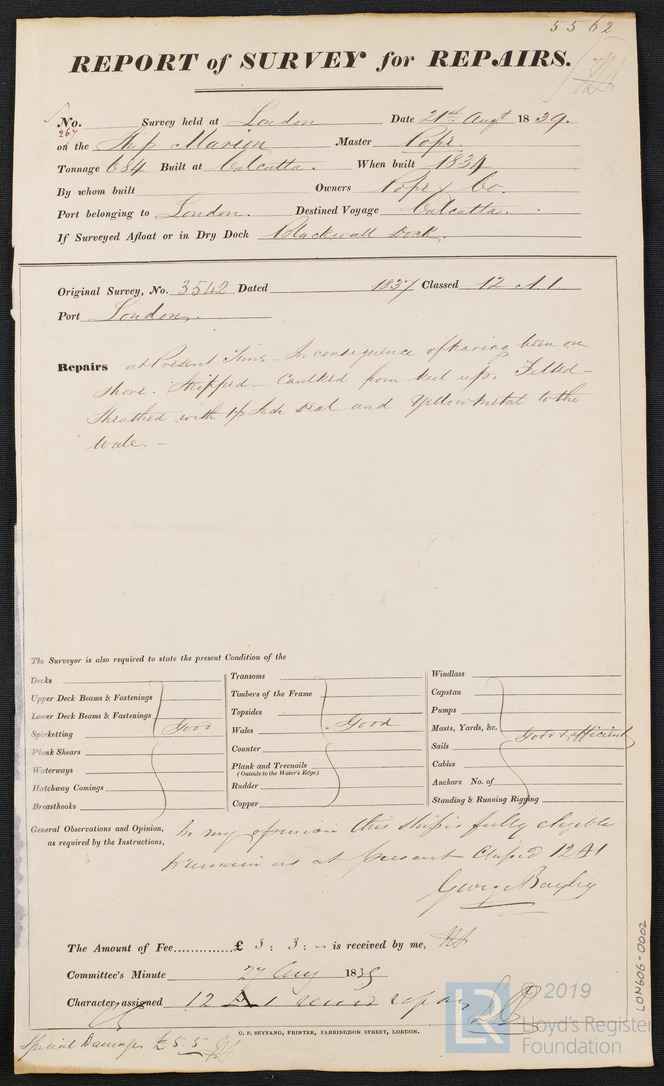 5562
REPORT of SURVEY for REPAIRS.
No. 267 Survey held at London Date 21st Augt 1839.
on the Ship Marion Master Pope.
Tonnage 684 Built at Calcutta. When built 1834
By whom built Owners Pope & Co.
Port belonging to London. Destined Voyage Calcutta.
If Surveyed Afloat or in Dry Dock Blackwall Dock.
Original Survey, No. 3542 Dated 1837 Classed 12 A1
Port London.
Repairs at Present Time - In consequence of having been on
shore. Stripped - Caulked from keel up. Felted -
Sheathed with Inch Deal and Yellow Metal to the
Wale. -
The Surveyor is also required to state the present Condition of the
Decks
Upper Deck Beams & Fastenings
Lower Deck Beams & Fastenings
Spirketting Good
Plank Shears
Waterways
Hatchway Comings
Breasthooks
Transoms
Timbers of the Frame
Topsides
Wales Good
Counter
Plank and Treenails
(Outside to the Water's Edge)
Rudder
Copper
Windlass
Capstan
Pumps
Masts, Yards, &c. Good & efficient
Sails
Cables
Anchors No. of
Standing & Running Rigging
General Observations and Opinion, In my opinion this ship is fully eligible
as required by the Instructions, to remain as at present Classed 12 A1
George Bayley
The Amount of Fee..............£ 3 : 3 : - is received by me,
Committee's Minute 27 Aug 1839
Character assigned 12 A1
G. F. SEYFANG, PRINTER, FARRINGDON STREET, LONDON.
Special Damages £5.5
LON606-0002
LR
© 2019
Lloyd's Register
Foundation